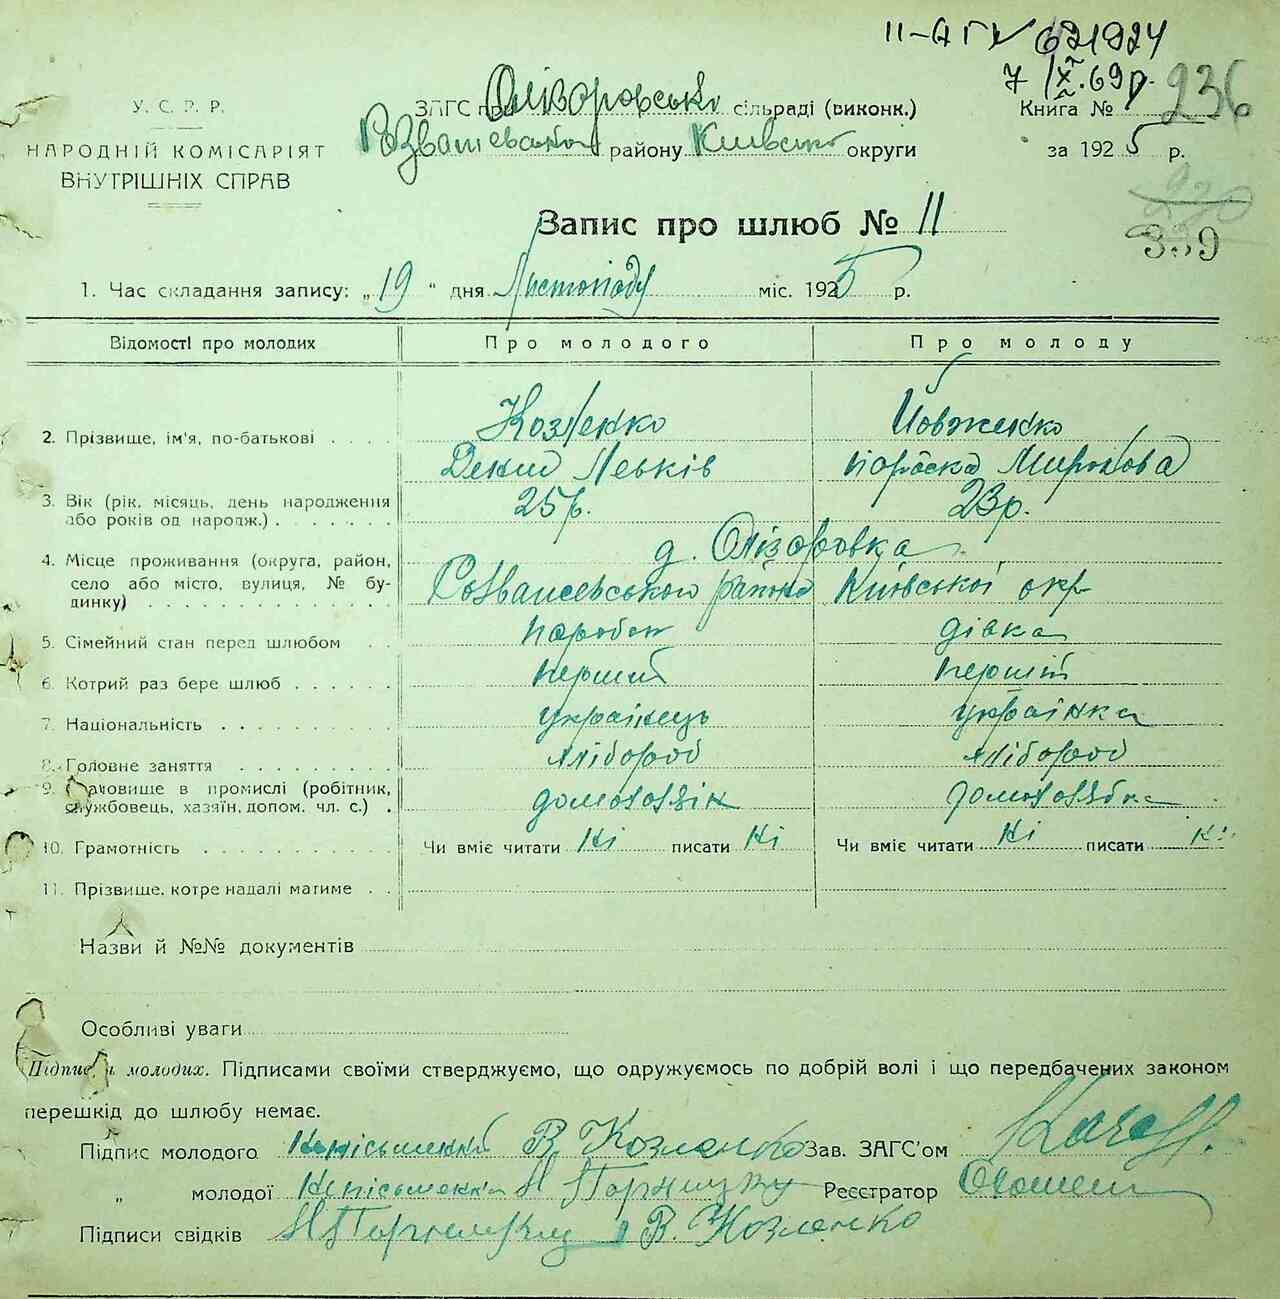 II-АГV 621924
7/X.69р. 236
У. С. Р. Р.
ЗАГС при Олізоровській сільраді (виконк.)
Книга №
НАРОДНІЙ КОМІСАРІЯТ
ВНУТРІШНІХ СПРАВ
Розважевського району Київської округи
за 1925 р.
230
339
Запис про шлюб № 11
1. Час складання запису: „19" дня Листопаду міс. 1925 р.
Відомості про молодих
Про молодого
Про молоду
2. Прізвище, ім'я, по-батькові . . . .
Козленко
Йовженко
Левків
Параска Миронова
3. Вік (рік, місяць, день народження
або років од народж.) . . . . . . .
25 р.
23 р.
4. Місце проживання (округа, район,
село або місто, вулиця, № бу-
динку) . . . . . . . . . . . . .
д. Олізаровка
Розважевського району Київської окр
5. Сімейний стан перед шлюбом . .
парубок
дівка
6. Котрий раз бере шлюб . . . . . .
перший
перший
7. Національність . . . . . . . . . .
українець
українка
8. Головне заняття . . . . . . . . .
хлібороб
хлібороб
9. Становище в промислі (робітник,
службовець, хазяїн, допом. чл. с.) .
10. Грамотність . . . . . . . . . . .
Чи вміє читати ні писати ні
Чи вміє читати ні писати ні
11. Прізвище, котре надалі матиме . .
Назви й №№ документів
Особливі уваги
Підписи молодих. Підписами своїми стверджуємо, що одружуємось по добрій волі і що передбачених законом
перешкід до шлюбу немає.
Підпис молодого В. Козленко Зав. ЗАГС'ом
„ молодої Реєстратор
Підписи свідків В. Козленко